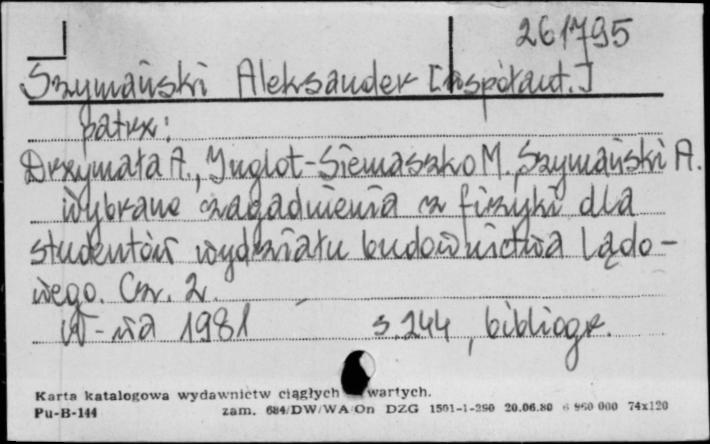 261795
Szymański Aleksander [współaut.]
patrz:
Drzymała A., Inglot-Siemaszko M., Szymański A.
Wybrane zagadnienia z fizyki dla
studentów wydziału budownictwa lądo-
wego. Cz. 2.
W-wa 1981 s. 244, bibliogr.
Karta katalogowa wydawnictw ciągłych wartych.
Pu-B-144 zam. 684/DW/WA/On DZG 1501-1-290 20.06.80 6 860 000 74x120